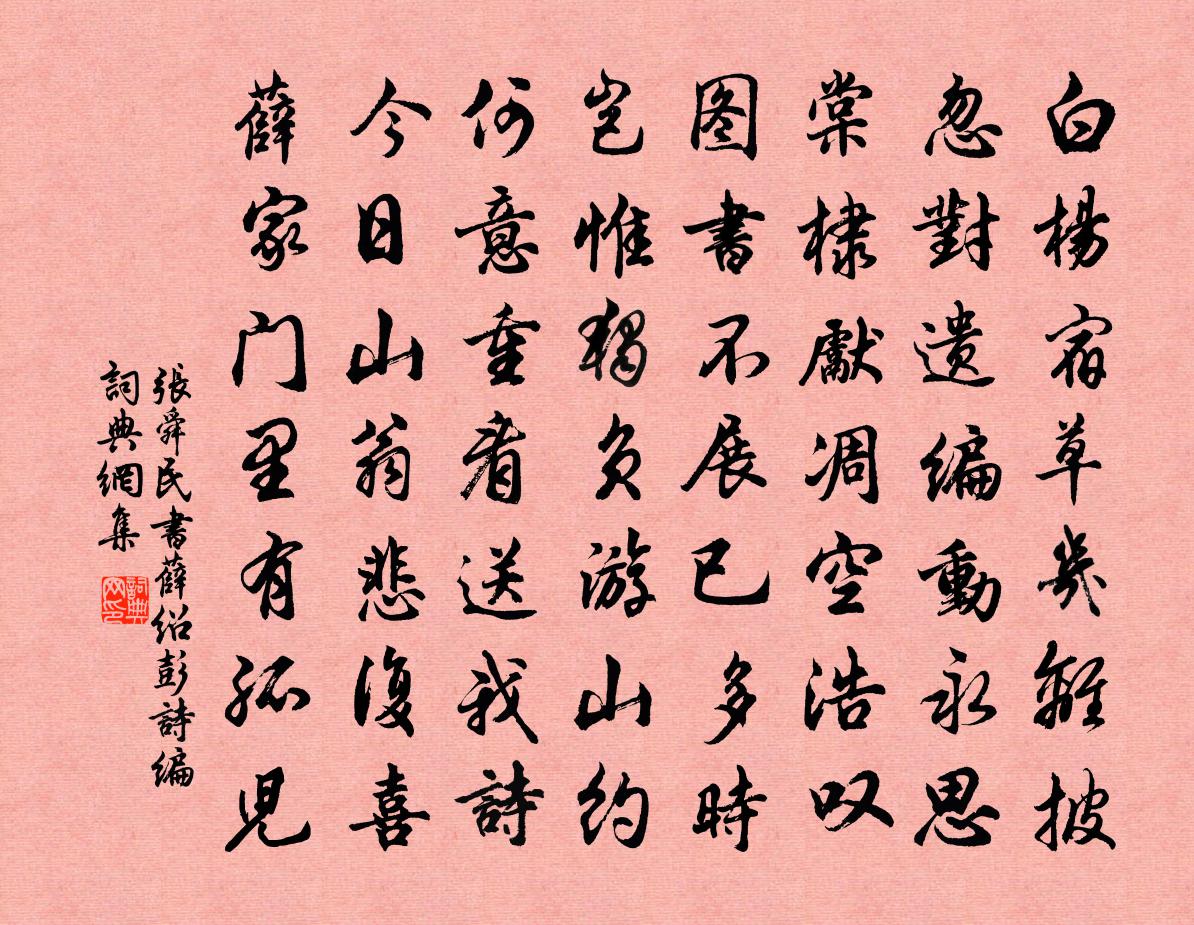 白楊宿草幾離披
忽對遗编動永思
棠棣獻凋空浩叹
图書不展已多時
岂惟獨负游山约
何意重看送我詩
今日山翁悲復喜
薛家门里有孤児
張舜民書薛绍彭詩编
詞典網集
詞典网印